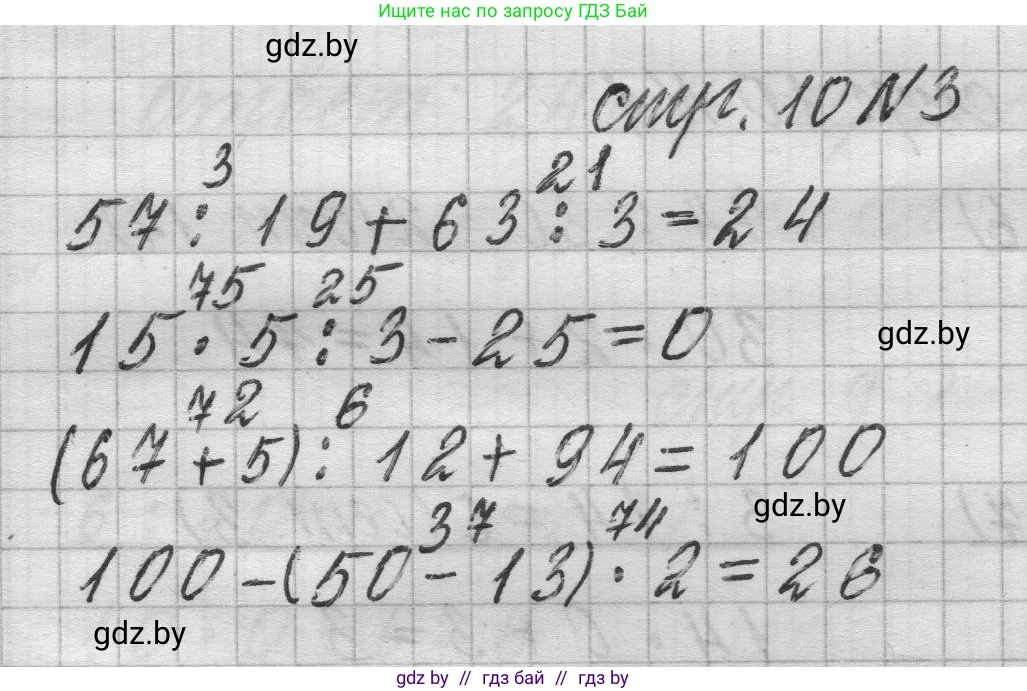 Ищите нас по запросу ГДЗ Бай
gdz.by
стр. 10 N 3
3 21
57 : 19 + 63 : 3 = 24
75 25
15 · 5 : 3 - 25 = 0
gdz.by
72 6
(67 + 5) : 12 + 94 = 100
gdz.by
37 74
100 - (50 - 13) · 2 = 26
gdz.by
gdz.by // гдз бай // gdz.by